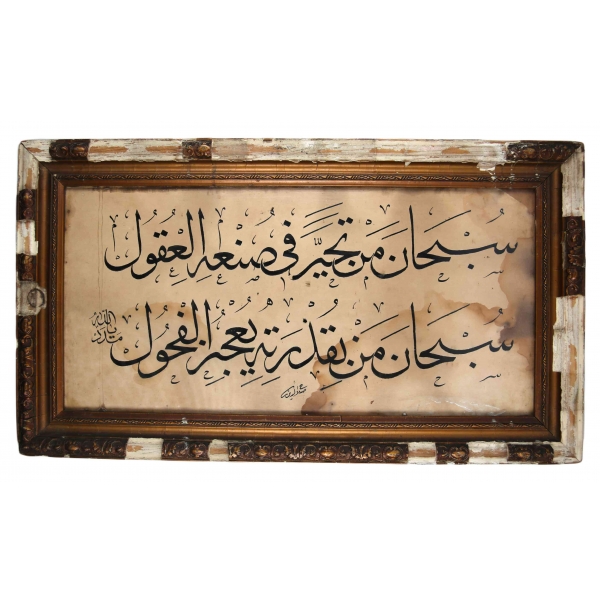 سُبْحَانَ مَنْ تَحَيَّرَ فِي صُنْعِهِ الْعُقُولُ
سُبْحَانَ مَنْ بِقُدْرَتِهِ يُعْجِزُ الْفُحُولَ